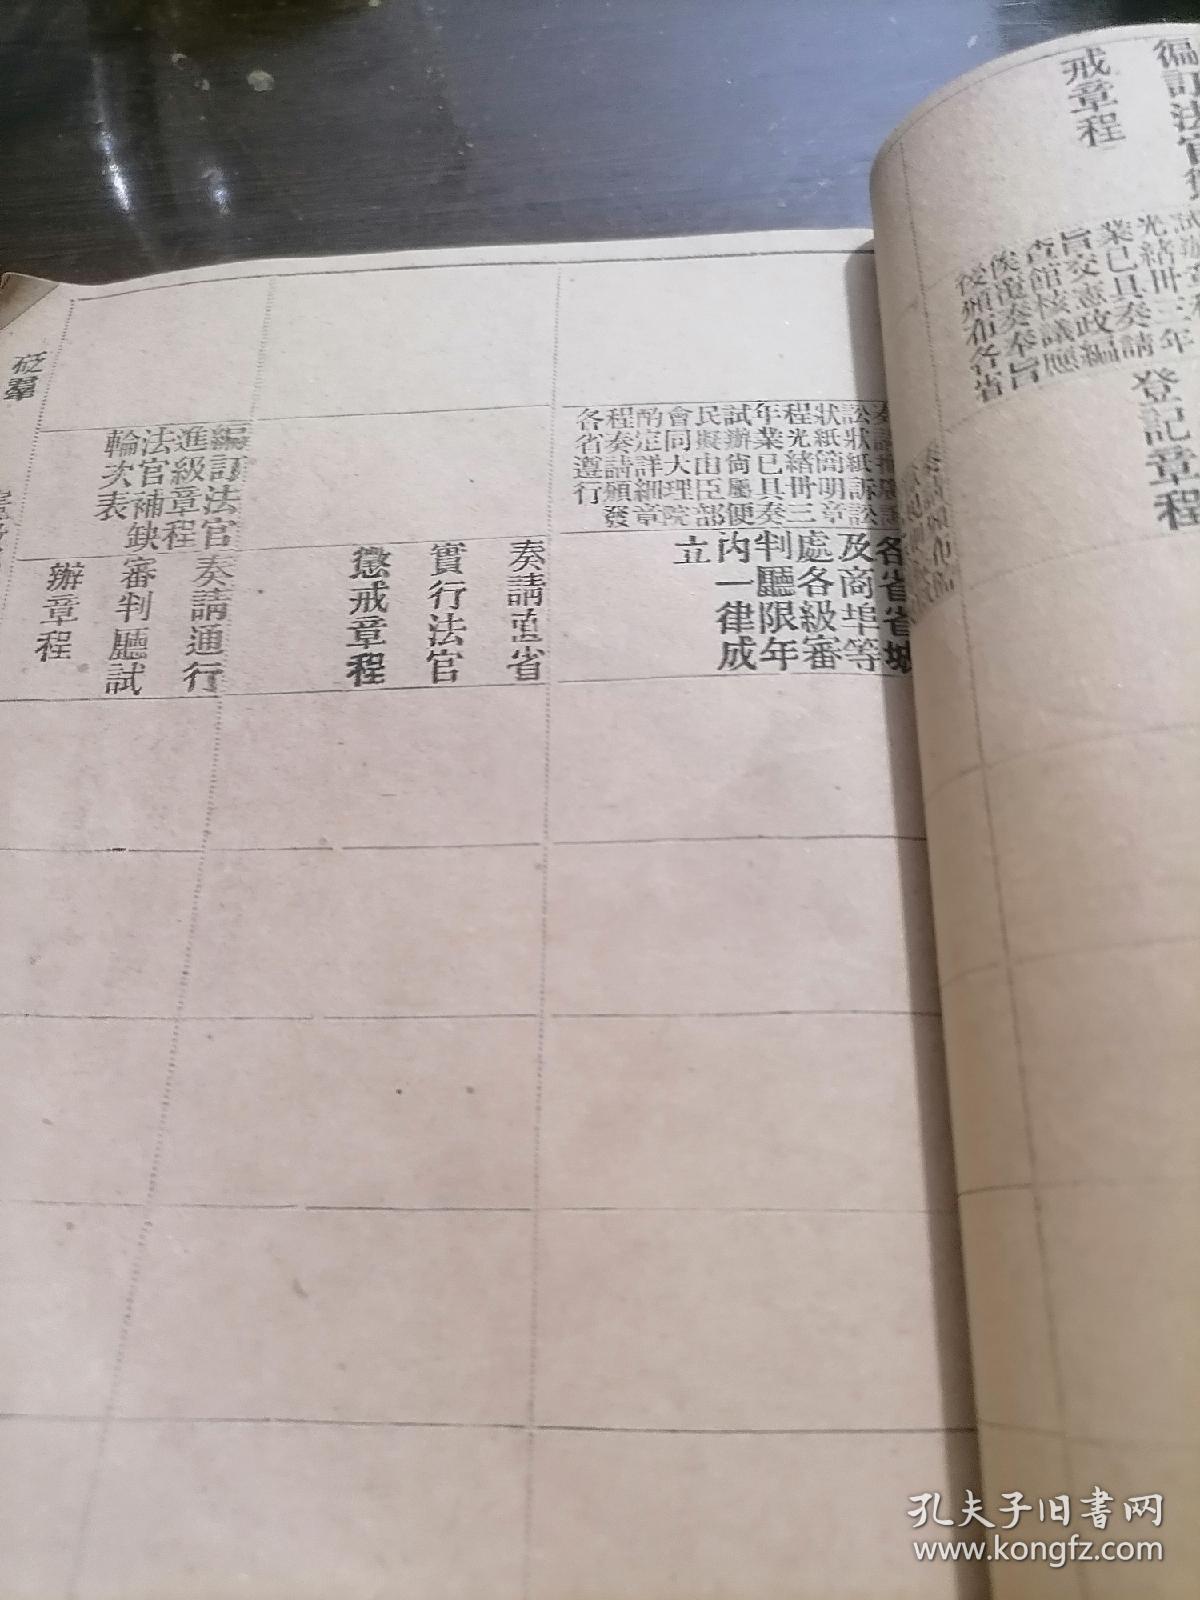 戒章程
光緒卅三年
業已具奏請
旨交憲政編
查館核議應
俟覆奏奉旨
後頒布各省
登記章程
訟狀紙訴訟
狀紙簡明章
程光緒卅三
年業已具奏
試辦尚屬便
民擬由臣部
會同大理院
酌定詳細章
程奏請頒發
各省遵行
各省省城
及商埠等
處各級審
判廳限年
内一律成
立
奏請直省
實行法官
懲戒章程
編訂法官
進級章程
法官補缺
輪次表
奏請通行
審判廳試
辦章程
孔夫子旧书网
www.kongfz.com